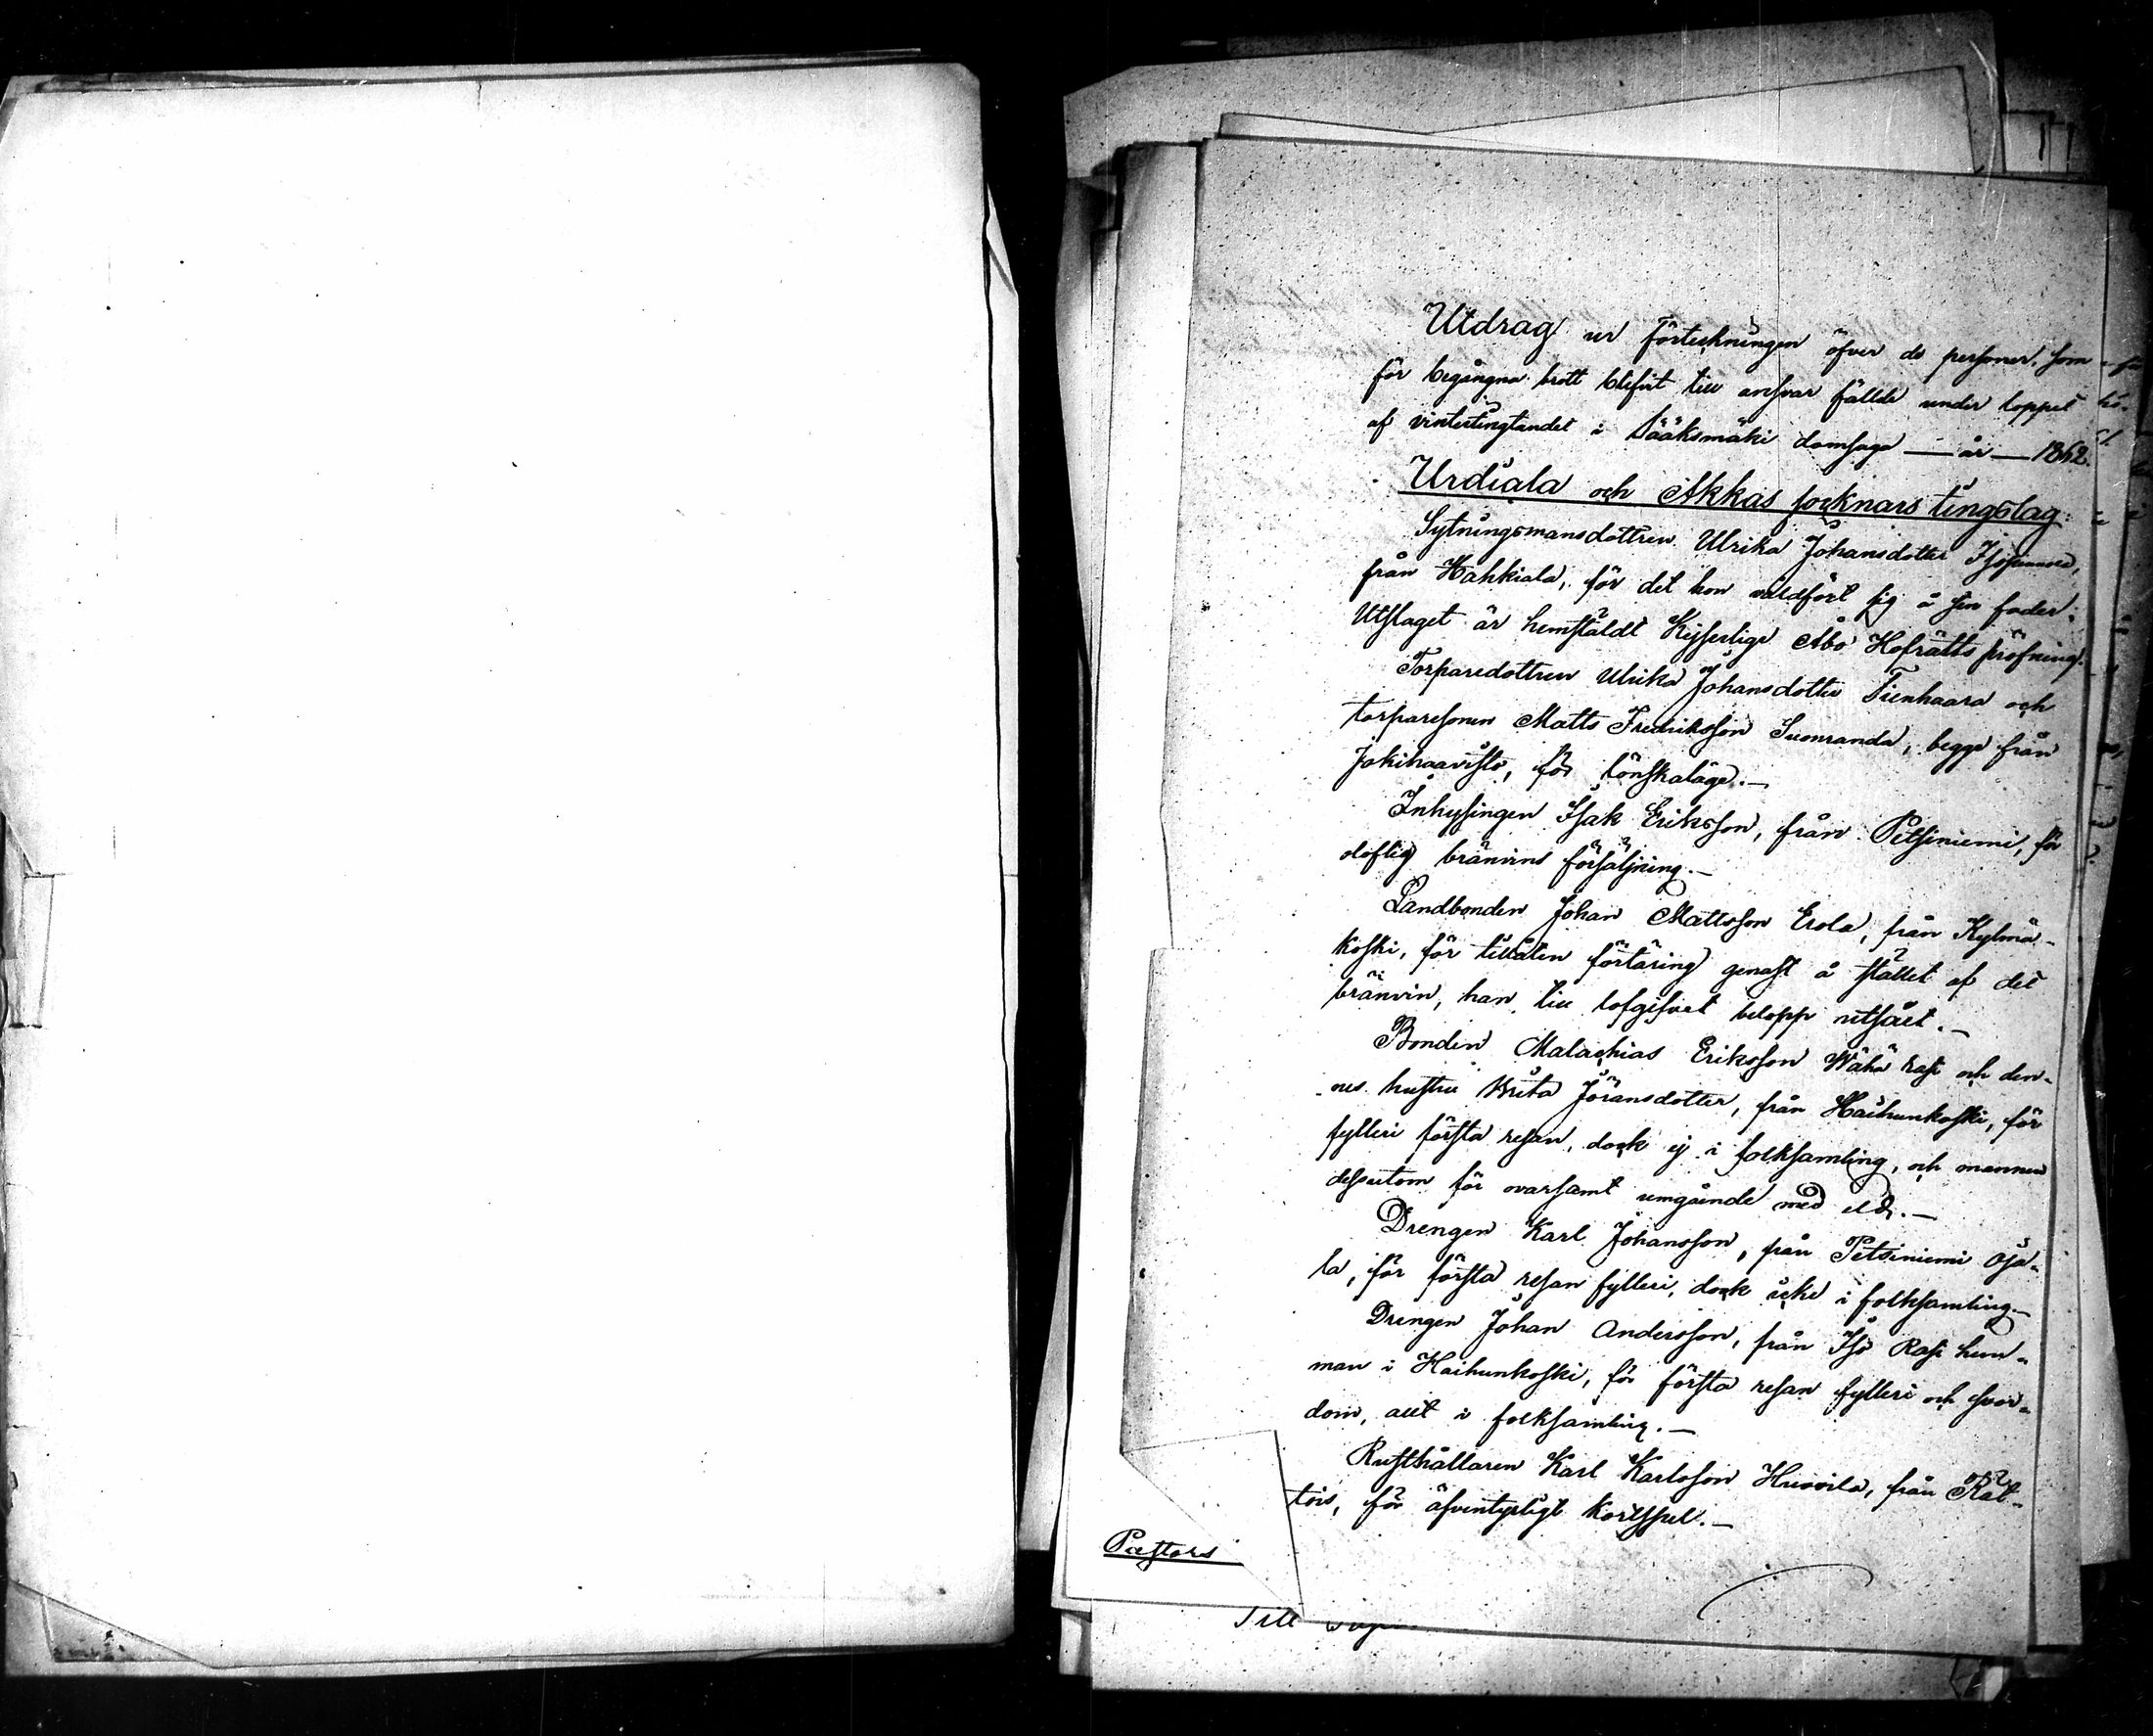 Utdrag ur Förteckningen öfver de personer, som
för begångna brott blifvit till ansvar fällde under loppet
af vintertingtandet i Sääksmäki domsaga — år — 1862.
Urdiala och Akkas socknars tingslag:
Sytningsmansdottren Ulrika Johansdotter
från Hahkiala, för det hon våldfört sig å sin fader.
Utslaget är hemstäldt Kejserliga Åbo Hofrätts pröfning.
Torparedottren Ulrika Johansdotter Tienhaara och
torparesonen Matts Fredriksson Suonranda, begge från
Jokihaavisto, för lönskaläge.—
Inhysingen Isak Eriksson, från Petsiniemi, för
oloflig bränvins försäljning.—
Landbonden Johan Mattsson Erola, från Kylmä-
koski, för tillåten förtäring genast å stället af det
bränvin, han till lofgifvet belopp utsålt.—
Bonden Malachias Eriksson Wähä Rasi och den-
nes hustru Brita Jöransdotter, från Haihunkoski, för
fylleri första resan, dock ej i folksamling, och mannen
dessutom för ovarsamt umgående med eld.—
Drengen Karl Johansson, från Petsiniemi Oja-
la, för första resan fylleri, dock icke i folksamling.—
Drengen Johan Andersson, från Iso Rasi hem-
man i Haihunkoski, för första resan fylleri och svor-
dom, allt i folksamling.—
Rusthållaren Karl Karlsson Huovila, från Rät-
tois, för äfventyrligt kortspel.—
Pastors
Till